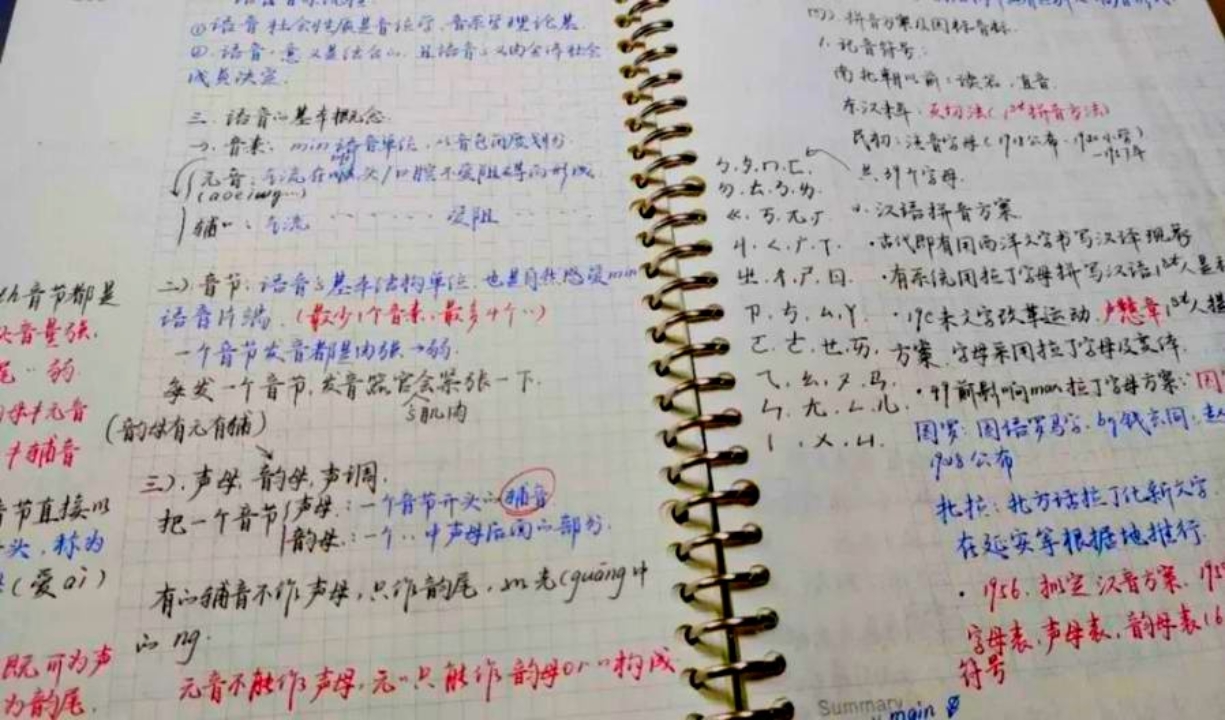 ①语音社会性质是音位学、音系学理论基
②语音·意义是结合,且语音、义内会得社会
成员决定.
三.语音的基本概念
一).音素:min语音单位,从音色角度划分
元音:气流在 头/口腔不受阻碍而形成
(aoeiuü…)
辅〃:气流 …… 受阻 ……
二).音节:语音的基本结构单位.也是自然感受min
语音片断.(最少1个音素,最多4个〃)
一个音节发音都是由强→弱.
每发一个音节,发音器官会紧张一下.
肌肉
(韵母有元有辅)
三).声母,韵母,声调.
把一个音节
声母.:一个音节开头的辅音
韵母.:一个〃中声母后面的部分.
有的辅音不作声母,只作韵尾,如光(guāng中
的ng.
元音不能作声母,元〃只能作韵母or〃构成
音节都是
头音量强.
尾〃弱
韵母≠元音
≠辅音
音节直接以
头,称为
(爱ai)
既可为声
为韵尾.
四).拼音方案及国际音标.
1.记音符号:
南北朝以前:读若,直音.
东汉末年:反切法(1st拼音方法)
民初:注音字母(1918公布,1920小学)
-1957年
共39个字母.
ㄅ.ㄆ.ㄇ.ㄈ
ㄉ.ㄊ.ㄋ.ㄌ.
ㄍ.ㄎ.ㄫ.ㄏ
ㄐ.ㄑ.ㄏ.ㄒ.
ㄓ.ㄔ.ㄕ.ㄖ.
ㄗ.ㄘ.ㄙ.ㄚ.
ㄛ.ㄜ.ㄝ.ㄞ.
ㄟ.ㄠ.ㄡ.ㄢ.
ㄣ.ㄤ.ㄥ.ㄦ.
ㄧ.ㄨ.ㄩ.
2.汉语拼音方案
·古代即有用西洋文字书写汉译现象
·有系统用拉丁字母拼写汉语1st人是
·19C末文字改革运动,卢戆章1st人提
方案.字母采用拉丁字母及变体.
·49前影响max拉丁字母方案:国
国罗:国语罗马字.by钱玄同,赵
1928公布
北拉:北方话拉丁化新文字.
在延安等根据地推行.
·1956.拟定汉音方案.195
字母表,声母表,韵母表(6
符号
Summary
main